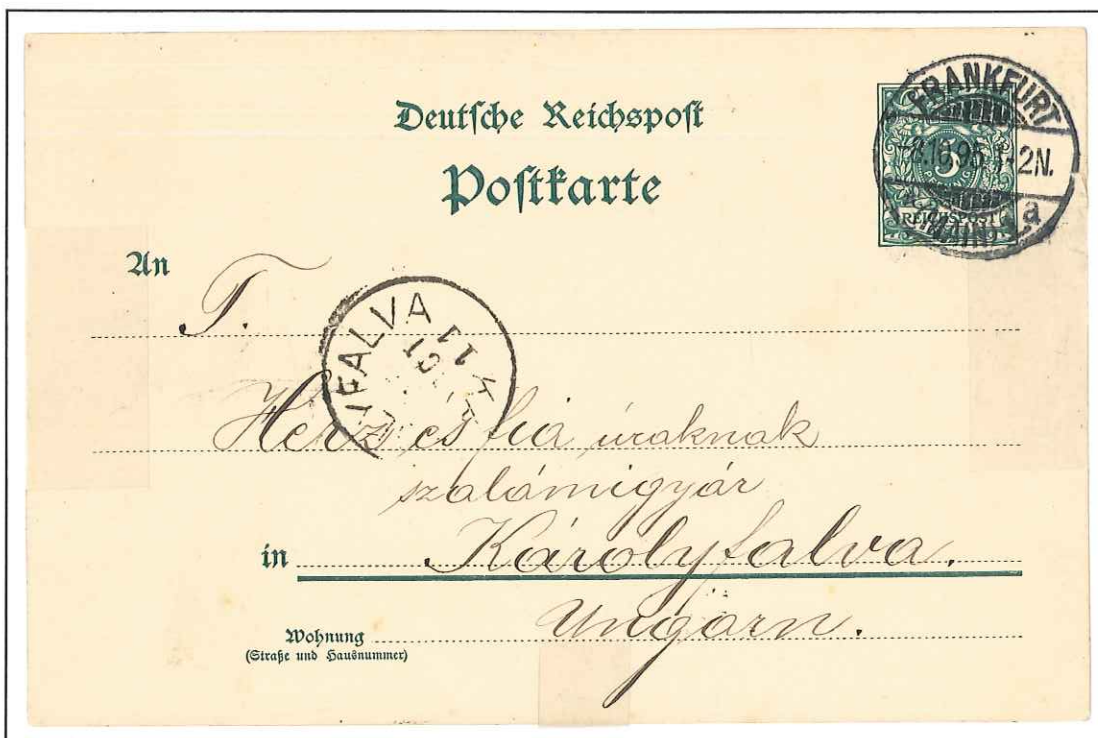 Deutsche Reichspost
Postkarte
FRANKFURT
10.95. 1-2N.
(MAIN) a
5
PFENNIG
REICHSPOST
An
T.
YFALVA
Herz és fia úraknak
szalámigyár
in Károlyfalva.
Ungarn.
Wohnung
(Straße und Hausnummer)